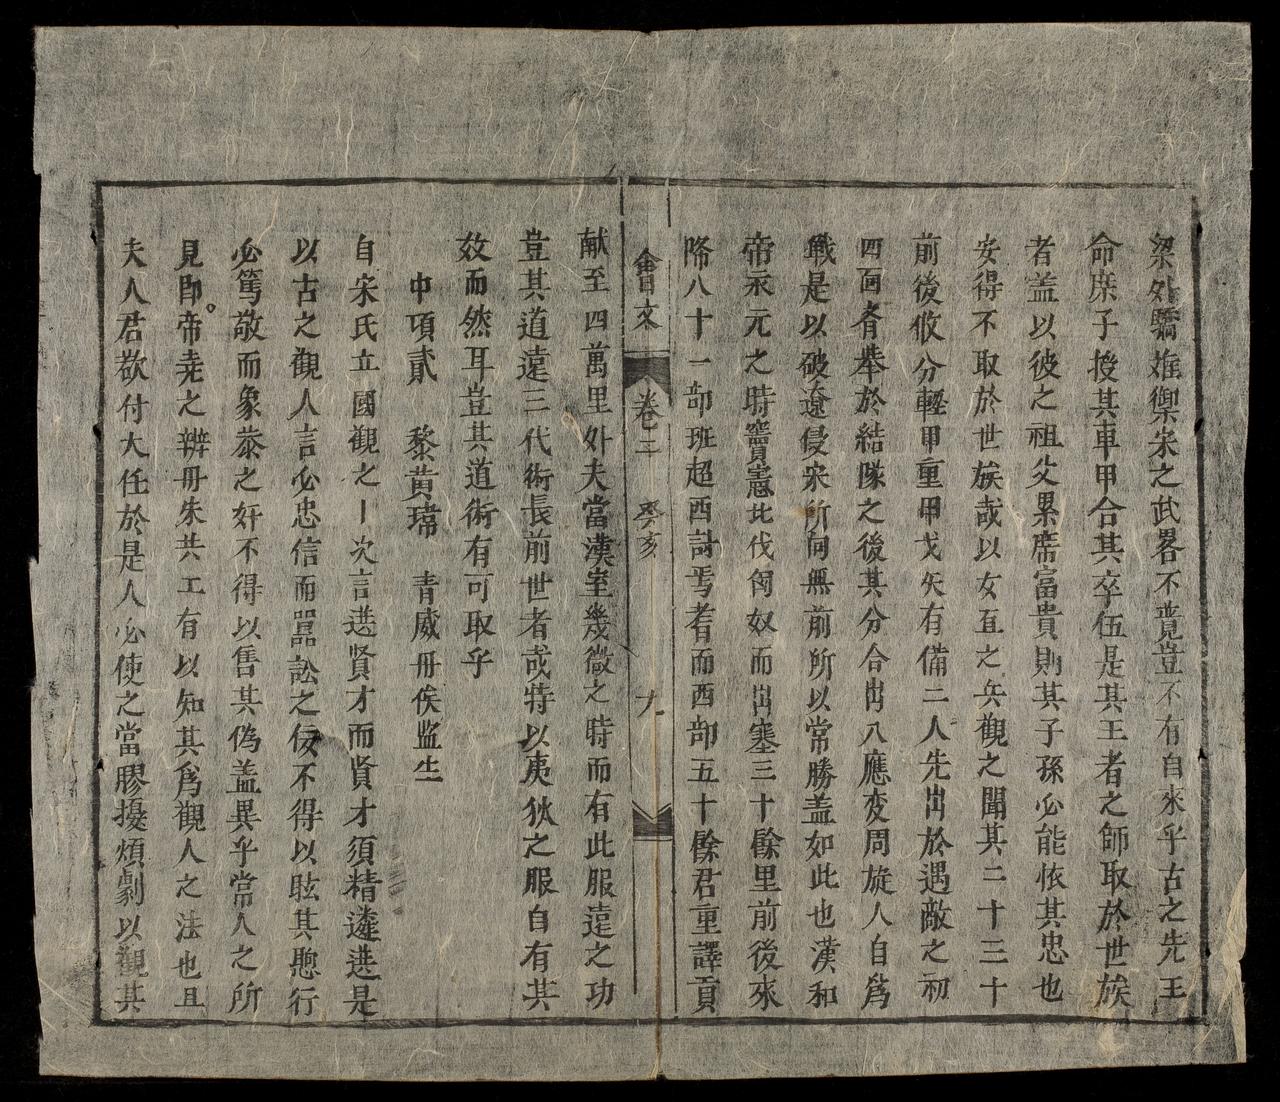 梁外驕雄禦宋之武畧不競豈不有自來乎古之先王
命庶子授其車甲合其卒伍是其王者之師取於世族
者盖以彼之祖父累席富貴則其子孫必能恢其忠也
安得不取於世族哉以女直之兵觀之聞其二十三十
前後攸分輕甲重甲戈矢有備二人先出於遇敵之初
四面者舉於結隊之後其分合出入應变周旋人自為
戰是以破遼侵宋所向無前所以常勝盖如此也漢和
帝永元之時竇憲北伐匈奴而出塞三十餘里前後來
降八十一部班超西討焉耆而西部五十餘君重譯貢
會文 卷三 癸亥 九
献至四萬里外夫當漢室幾微之時而有此服遠之功
豈其道遠三代術長前世者或特以夷狄之服自有其
效而然耳豈其道術有可取乎
中項貳 黎黄瑋 青威册俟监生
自宋氏立國觀之丨次言选賢才而賢才須精遴选是
以古之觀人言必忠信而嚚訟之佞不得以眩其聽行
必篤敬而象恭之奸不得以售其偽盖異乎常人之所
見卽帝堯之辨丹朱共工有以知其為觀人之法也且
夫人君欲付大任於是人必使之當膠擾煩劇以觀其